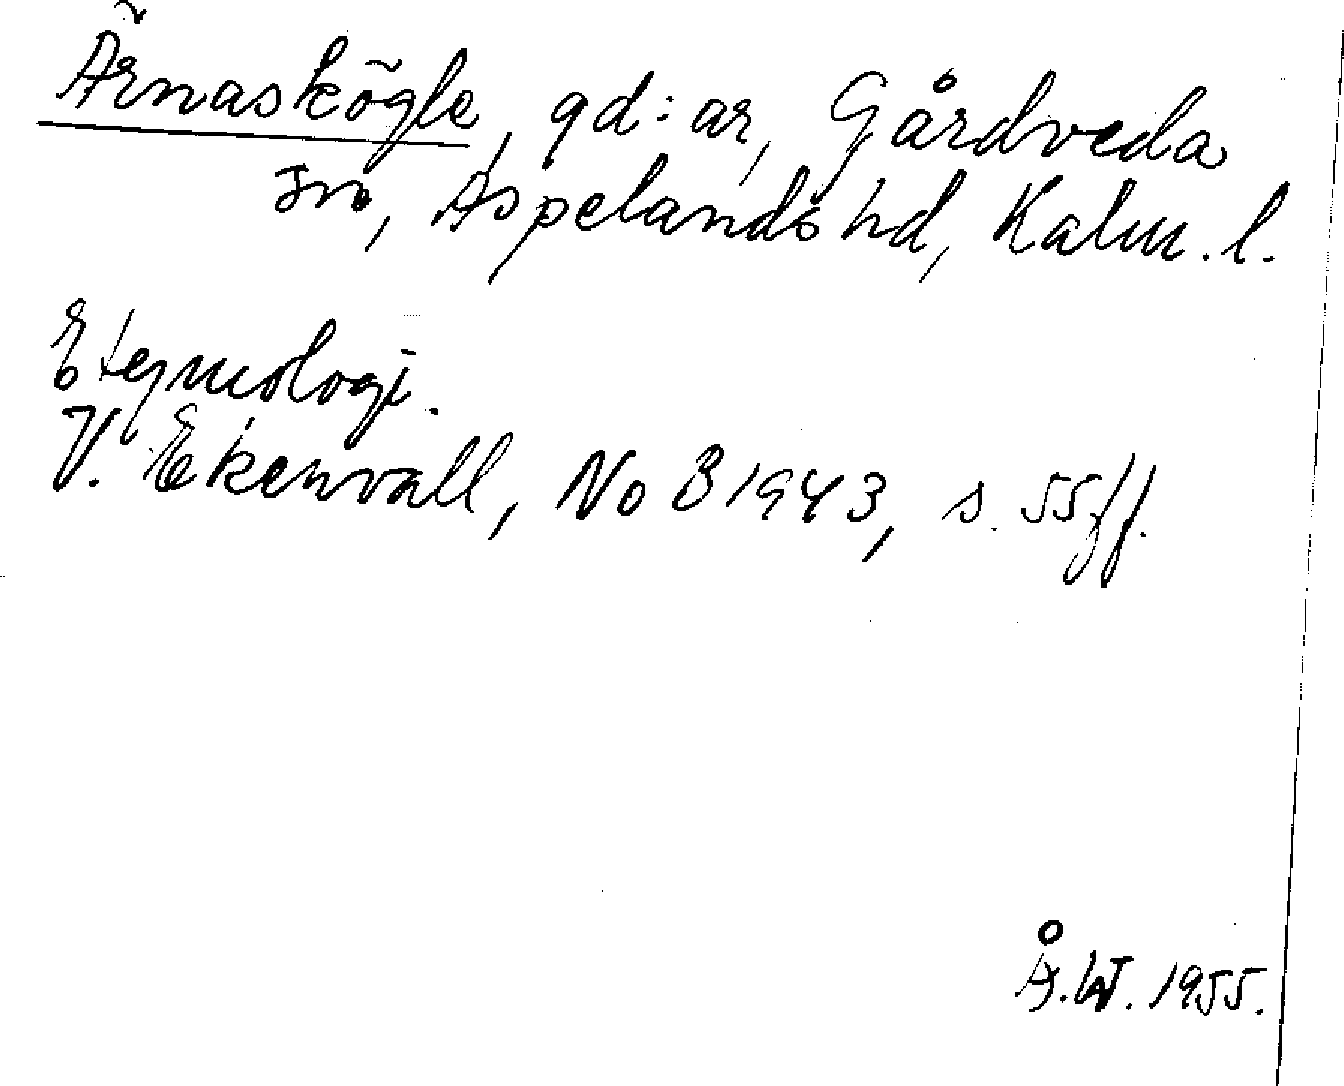 Ärnaskögle, gd:ar, Gårdveda
sn, Aspelands hd, Kalm. l.
Etymologi.
V. Ekenvall, No B 1943, s. 55 ff.
Å.W. 1955.